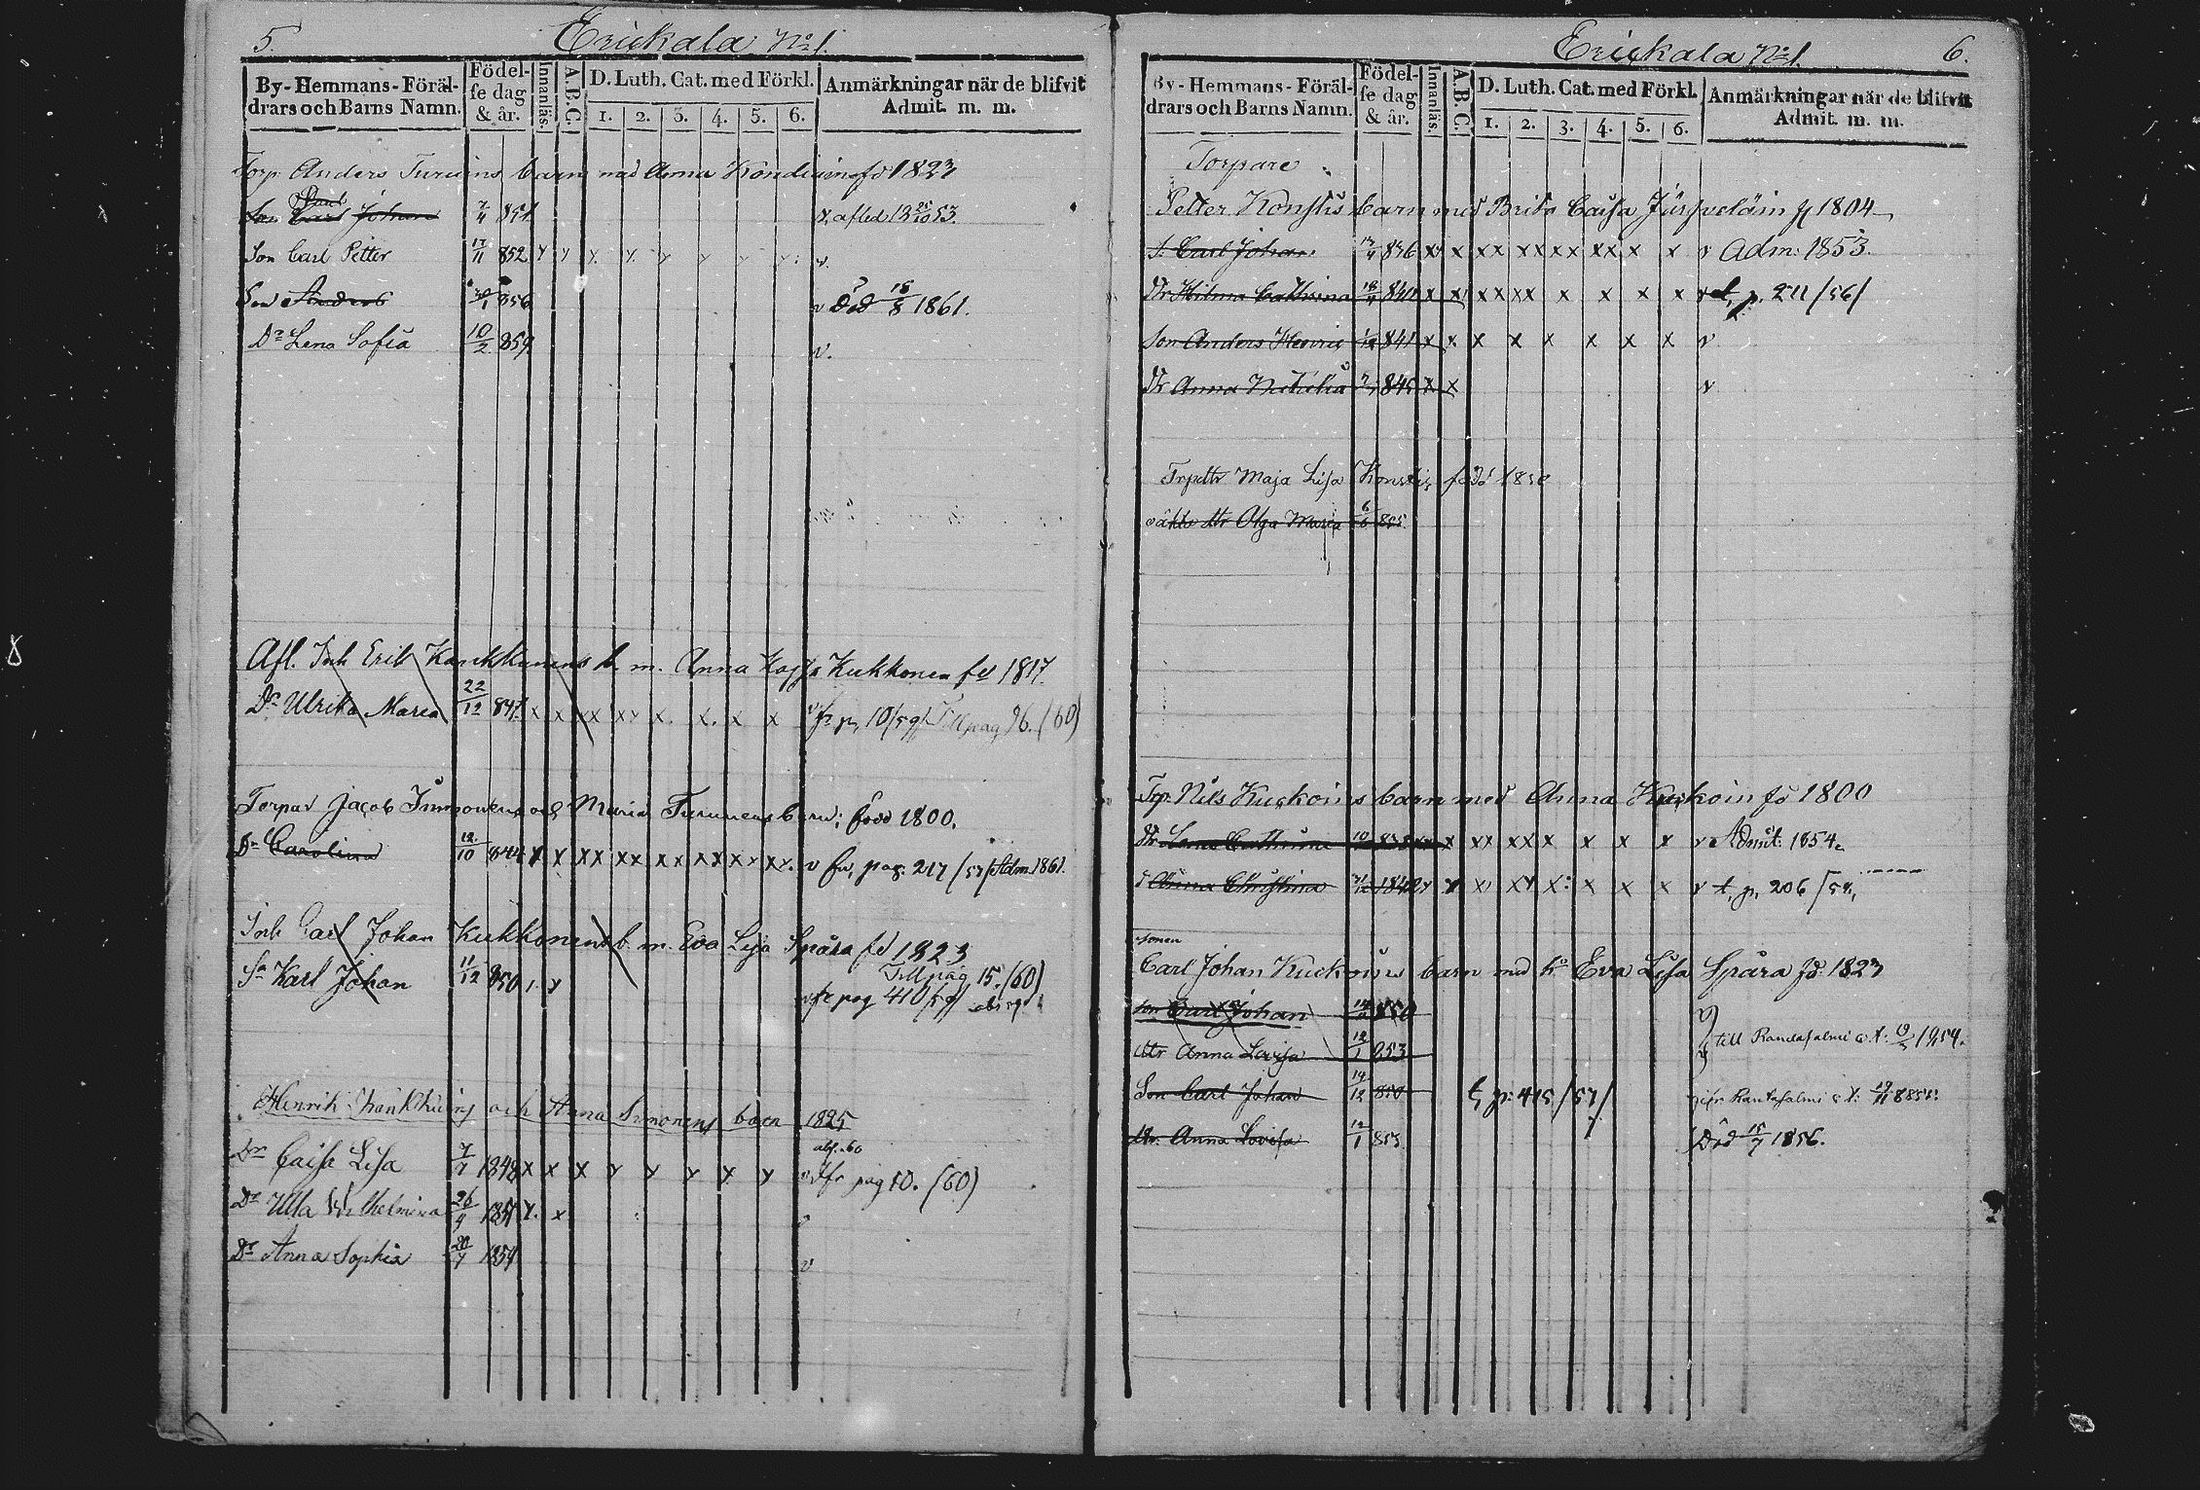 5. Erickala No 1.
By-Hemmans-Föräldrars och Barns Namn. Födelse dag & år. Innanläs. A.B.C. D. Luth. Cat. med Förkl. 1. 2. 3. 4. 5. 6. Anmärkningar när de blifvit Admit. m. m.
Torp. Anders Turuins barn med Anna fd 1823
Son Johan 7/4 851 v. afled 13 25/10 53.
Son Carl Petter 17/11 852 x x x x x x x x v.
Son Anders 30/1 856 v Död 18/8 1861.
Dr Lena Sofia 10/2 859 v.
Afl. Inh Erik Karkkunens b. m. Anna Kajsa Kukkonen fd 1817.
Dr Ulrika Maria 22/12 847 x x xx xx x. x. x x v fr p. 10/59/ Till pag 96. (60)
Torpar Jacob Immonens och Maria Turunens barn; född 1800.
Dr Carolina 12/10 844 x x xx xx xx xx xx xx. v fr, pag. 217/57/ Adm. 1861.
Inh Carl Johan Kukkonens b. m. Eva Lisa Spåra fd 1823
Sn Karl Johan 11/12 850 1. x Till pag 15. (60)
v fr pag 410/59/
Henrik och Anna Simonens barn 1825
abs. 60
Dr Caisa Lisa 7/7 1848 x x x x x x x x v fr pag 10. (60)
Dr Ulla Wilhelmina 26/9 1851 x. x v
Dr Anna Sophia 20/7 1854 v
Erickala No 1. 6.
By-Hemmans-Föräldrars och Barns Namn. Födelse dag & år. Innanläs. A.B.C. D. Luth. Cat. med Förkl. 1. 2. 3. 4. 5. 6. Anmärkningar när de blifvit Admit. m. m.
Torpare
Petter Konstis barn med Brita Caisa fd 1804
s. Carl Johan 13/4 836 x x xx xx xx xx x x v Adm: 1853.
Dtr Hilma Cathrina 18/4 840 x x xx xx x x x x v t, p. 211/56/
Son Anders Henric 841 x x x x x x x x v
Dtr Anna 845 x x v
Trpdtr Maja Lisa Konstis född 1830
oäkta dtr Olga Maria 6/6 855
Trp. Nils Kuckoins barn med Anna Kuckoin fd 1800
Dtr Lena Cathrina 10/10 838 xx x xx xx x x x x v Admit: 1854.
d Anna Christina 1842 x x xx xx x: x x x v t, p, 206/59,
sonen
Carl Johan Kuckoins barn med h. Eva Lisa Spåra fd 1823
son Carl Johan 850
dtr Anna Lovisa 12/1 853 till Randasalmi 1854.
Son Carl Johan 14/12 850 t, p. 415/57/ ifr Rantasalmi 19/11 1855:
dtr. Anna Lovisa 12/1 853 Död 15/7 1856.